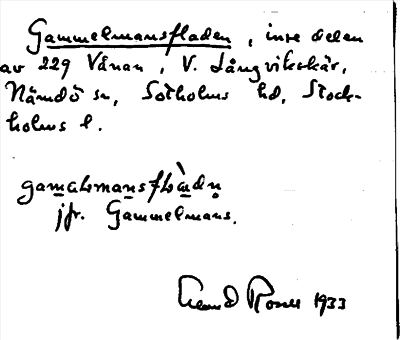 Gammelmansfladen, inre delen
av 229 Vånan, V. Långviksskär,
Nämdö sn, Sotholms hd, Stock-
holms l.
gamalmansflàdn
jfr. Gammelmans.
1933